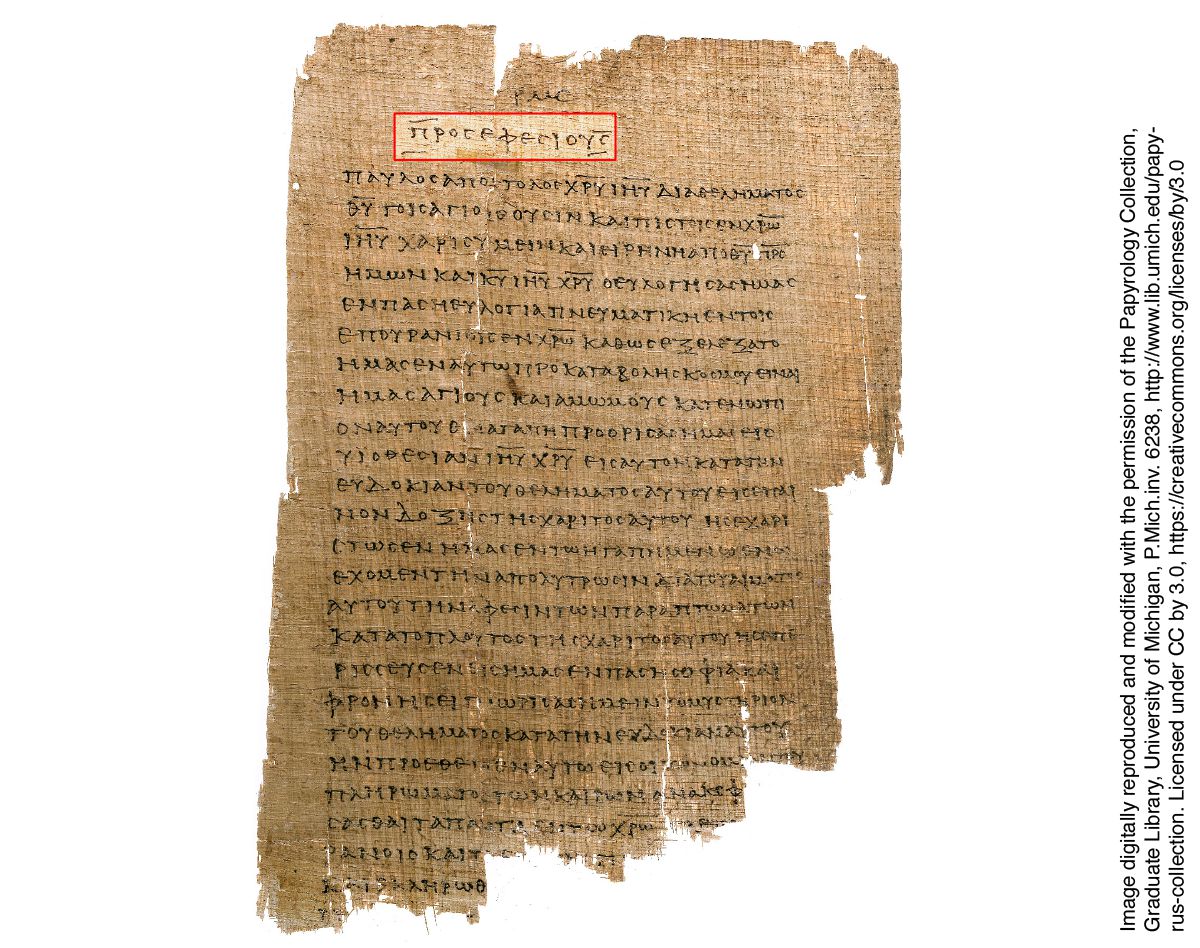 ΡΜϚ
ΠΡΟСΕΦΕСΙΟΥС
ΠΑΥΛΟСΑΠΟСΤΟΛΟСΧΡΥΙΗΥΔΙΑΘΕΛΗΜΑΤΟС
ΘΥΤΟΙСΑΓΙΟΙСΟΥСΙΝΚΑΙΠΙСΤΟΙСΕΝΧΡΩ
ΙΗΥΧΑΡΙСΥΜΕΙΝΚΑΙΕΙΡΗΝΗΑΠΟΘΥΠΡΟ
ΗΜΩΝΚΑΙΚΥΙΗΥΧΡΥΟΕΥΛΟΓΗСΑСΗΜΑС
ΕΝΠΑСΗΕΥΛΟΓΙΑΠΝΕΥΜΑΤΙΚΗΕΝΤΟΙС
ΕΠΟΥΡΑΝΙΟΙСΕΝΧΡΩΚΑΘΩСΕΞΕΛΕΞΑΤΟ
ΗΜΑСΕΝΑΥΤΩΠΡΟΚΑΤΑΒΟΛΗСΚΟСΜΟΥΕΙΝΑΙ
ΗΜΑСΑΓΙΟΥСΚΑΙΑΜΩΜΟΥСΚΑΤΕΝΩΠΙ
ΟΝΑΥΤΟΥΕΝΑΓΑΠΗΠΡΟΟΡΙСΑСΗΜΑСΕΙС
ΥΙΟΘΕСΙΑΝΙΗΥΧΡΥΕΙСΑΥΤΟΝΚΑΤΑΤΗΝ
ΕΥΔΟΚΙΑΝΤΟΥΘΕΛΗΜΑΤΟСΑΥΤΟΥΕΙСΕΠΑΙ
ΝΟΝΔΟΞΗСΤΗСΧΑΡΙΤΟСΑΥΤΟΥΗСΕΧΑΡΙ
СΤΩСΕΝΗΜΑСΕΝΤΩΗΓΑΠΗΜΕΝΩΕΝΩ
ΕΧΟΜΕΝΤΗΝΑΠΟΛΥΤΡΩСΙΝΔΙΑΤΟΥΑΙΜΑΤΟС
ΑΥΤΟΥΤΗΝΑΦΕСΙΝΤΩΝΠΑΡΑΠΤΩΜΑΤΩΝ
ΚΑΤΑΤΟΠΛΟΥΤΟСΤΗСΧΑΡΙΤΟСΑΥΤΟΥΗСΕΠΕ
ΡΙССΕΥСΕΝΕΙСΗΜΑСΕΝΠΑСΗСΟΦΙΑΚΑΙ
ΦΡΟΝΗСΕΙΓΝΩΡΙСΑСΗΜΕΙΝΤΟΜΥСΤΗΡΙΟΝ
ΤΟΥΘΕΛΗΜΑΤΟСΚΑΤΑΤΗΝΕΥΔΟΚΙΑΝΑΥΤΟΥ
ΗΝΠΡΟΕΘΕΤΟΕΝΑΥΤΩΕΙСΟΙΚΟΝΟΜ
ΠΛΗΡΩΜΑΤΟСΤΩΝΚΑΙΡΩΝΑΝΑΚΕΦ
СΑСΘΑΙΤΑΠΑΝΤΑΕΝΤΩΧΡΩ
ΡΑΝΟΙСΚΑΙΤ
ΚΑΙΕΚΛΗΡΩΘ
Image digitally reproduced and modified with the permission of the Papyrology Collection,
Graduate Library, University of Michigan, P.Mich.inv. 6238, http://www.lib.umich.edu/papy-
rus-collection. Licensed under CC by 3.0, https://creativecommons.org/licenses/by/3.0